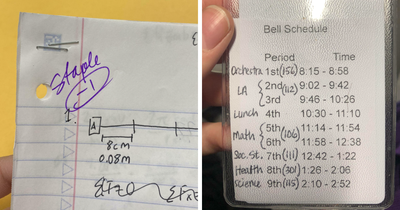 Staple
-1
1.
A
8cm
0.08m
ΣF=0
ΣFx=
Bell Schedule
Period Time
Orchestra 1st (156) 8:15 - 8:58
LA { 2nd (112) 9:02 - 9:42
3rd 9:46 - 10:26
Lunch 4th 10:30 - 11:10
Math { 5th (106) 11:14 - 11:54
6th 11:58 - 12:38
Soc. St. 7th (111) 12:42 - 1:22
Health 8th (301) 1:26 - 2:06
Science 9th (115) 2:10 - 2:52